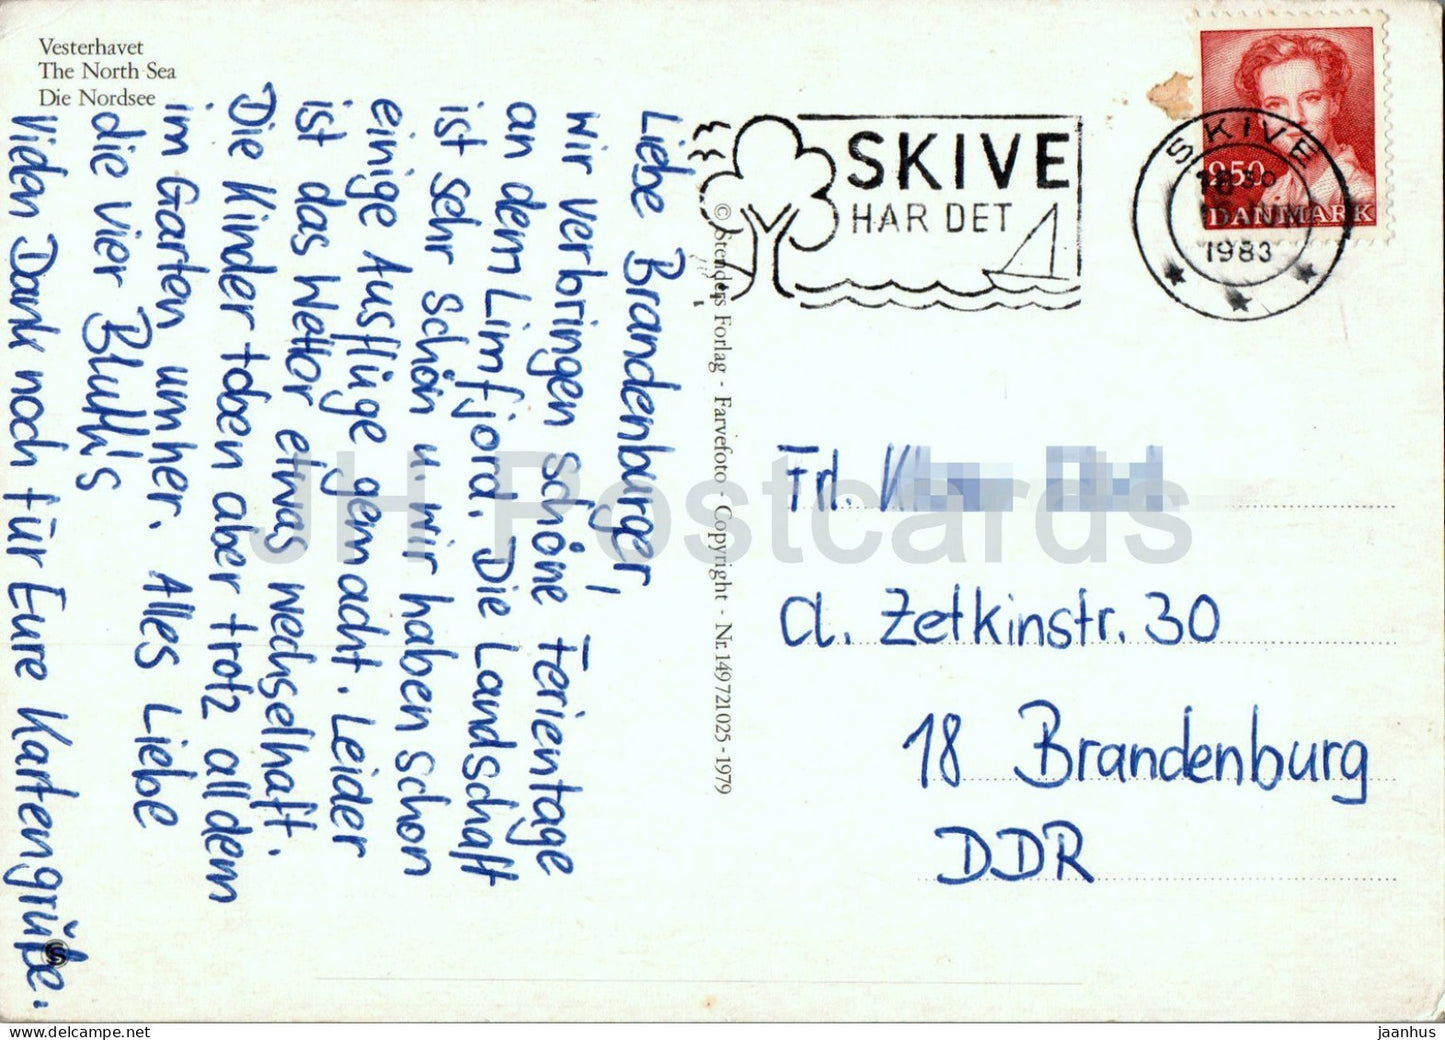 Vesterhavet
The North Sea
Die Nordsee
Liebe Brandenburger,
wir verbringen schöne Ferientage
an dem Limfjord. Die Landschaft
ist sehr schön u. wir haben schon
einige Ausflüge gemacht. Leider
ist das Wetter etwas wechselhaft.
Die Kinder toben aber trotz alldem
im Garten umher. Alles Liebe
die vier Bluth's
Vielen Dank noch für Eure Kartengrüße.
© Stenders Forlag - Farvefoto - Copyright - Nr. 149721025 - 1979
SKIVE
HAR DET
SKIVE
1983
950
DANMARK
Frl.
Cl. Zetkinstr. 30
18 Brandenburg
DDR
JH Postcards
jaanhus